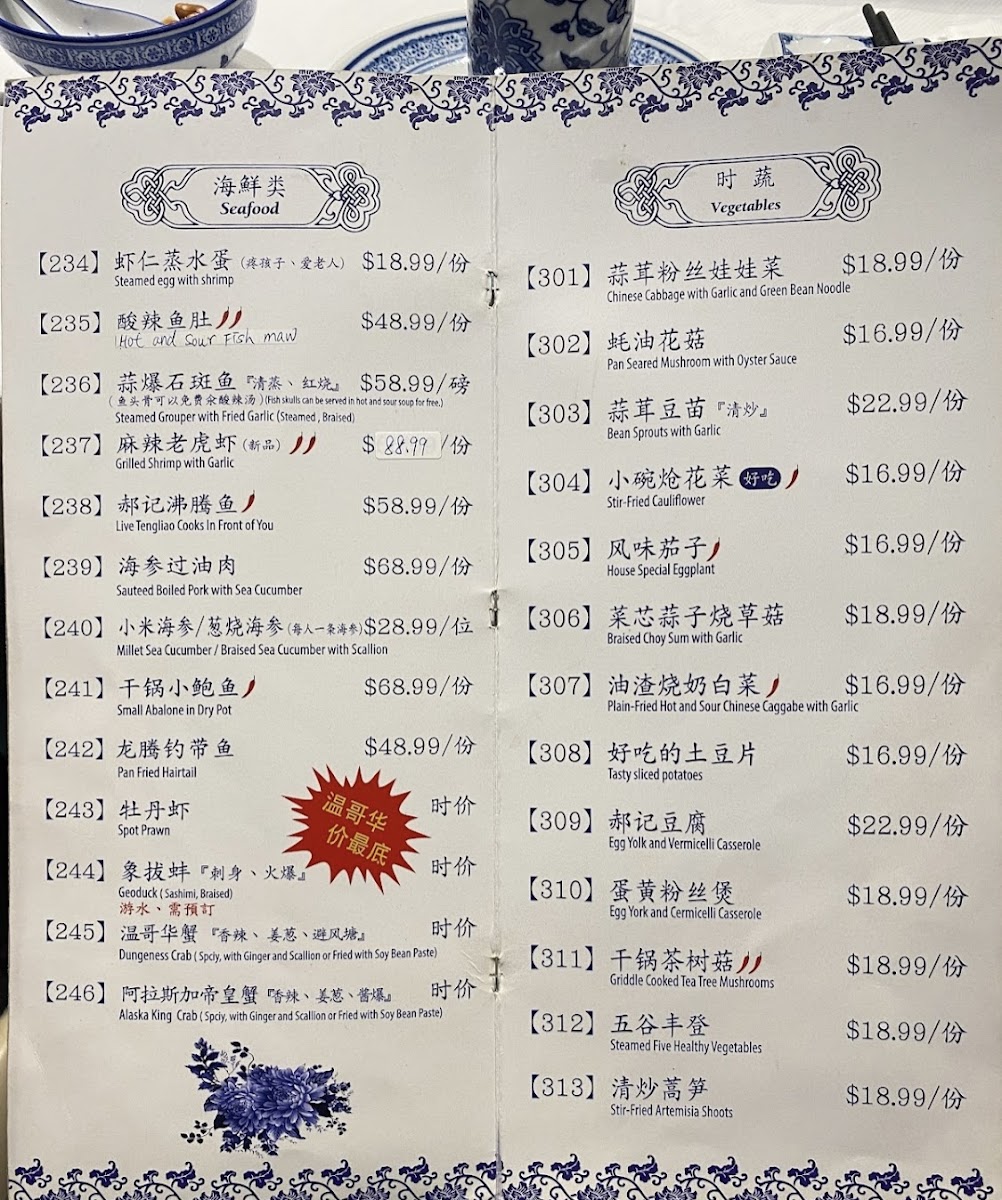 海鲜类
Seafood
【234】 虾仁蒸水蛋 (疼孩子、爱老人) $18.99/份
Steamed egg with shrimp
【235】 酸辣鱼肚 $48.99/份
Hot and Sour Fish maw
【236】 蒜爆石斑鱼『清蒸、红烧』 $58.99/磅
(鱼头骨可以免费汆酸辣汤)(Fish skulls can be served in hot and sour soup for free.)
Steamed Grouper with Fried Garlic (Steamed , Braised)
【237】 麻辣老虎虾 (新品) $ 88.99 /份
Grilled Shrimp with Garlic
【238】 郝记沸腾鱼 $58.99/份
Live Tengliao Cooks In Front of You
【239】 海参过油肉 $68.99/份
Sauteed Boiled Pork with Sea Cucumber
【240】 小米海参/葱烧海参 (每人一条海参) $28.99/位
Millet Sea Cucumber / Braised Sea Cucumber with Scallion
【241】 干锅小鲍鱼 $68.99/份
Small Abalone in Dry Pot
【242】 龙腾钓带鱼 $48.99/份
Pan Fried Hairtail
【243】 牡丹虾 时价
Spot Prawn
温哥华
价最底
【244】 象拔蚌『刺身、火爆』 时价
Geoduck ( Sashimi, Braised)
游水、需預訂
【245】 温哥华蟹 『香辣、姜葱、避风塘』 时价
Dungeness Crab ( Spciy, with Ginger and Scallion or Fried with Soy Bean Paste)
【246】 阿拉斯加帝皇蟹『香辣、姜葱、酱爆』 时价
Alaska King Crab ( Spciy, with Ginger and Scallion or Fried with Soy Bean Paste)
时蔬
Vegetables
【301】 蒜茸粉丝娃娃菜 $18.99/份
Chinese Cabbage with Garlic and Green Bean Noodle
【302】 蚝油花菇 $16.99/份
Pan Seared Mushroom with Oyster Sauce
【303】 蒜茸豆苗『清炒』 $22.99/份
Bean Sprouts with Garlic
【304】 小碗炝花菜 好吃 $16.99/份
Stir-Fried Cauliflower
【305】 风味茄子 $16.99/份
House Special Eggplant
【306】 菜芯蒜子烧草菇 $18.99/份
Braised Choy Sum with Garlic
【307】 油渣烧奶白菜 $16.99/份
Plain-Fried Hot and Sour Chinese Caggabe with Garlic
【308】 好吃的土豆片 $16.99/份
Tasty sliced potatoes
【309】 郝记豆腐 $22.99/份
Egg Yolk and Vermicelli Casserole
【310】 蛋黄粉丝煲 $18.99/份
Egg York and Cermicelli Casserole
【311】 干锅茶树菇 $18.99/份
Griddle Cooked Tea Tree Mushrooms
【312】 五谷丰登 $18.99/份
Steamed Five Healthy Vegetables
【313】 清炒蒿笋 $18.99/份
Stir-Fried Artemisia Shoots